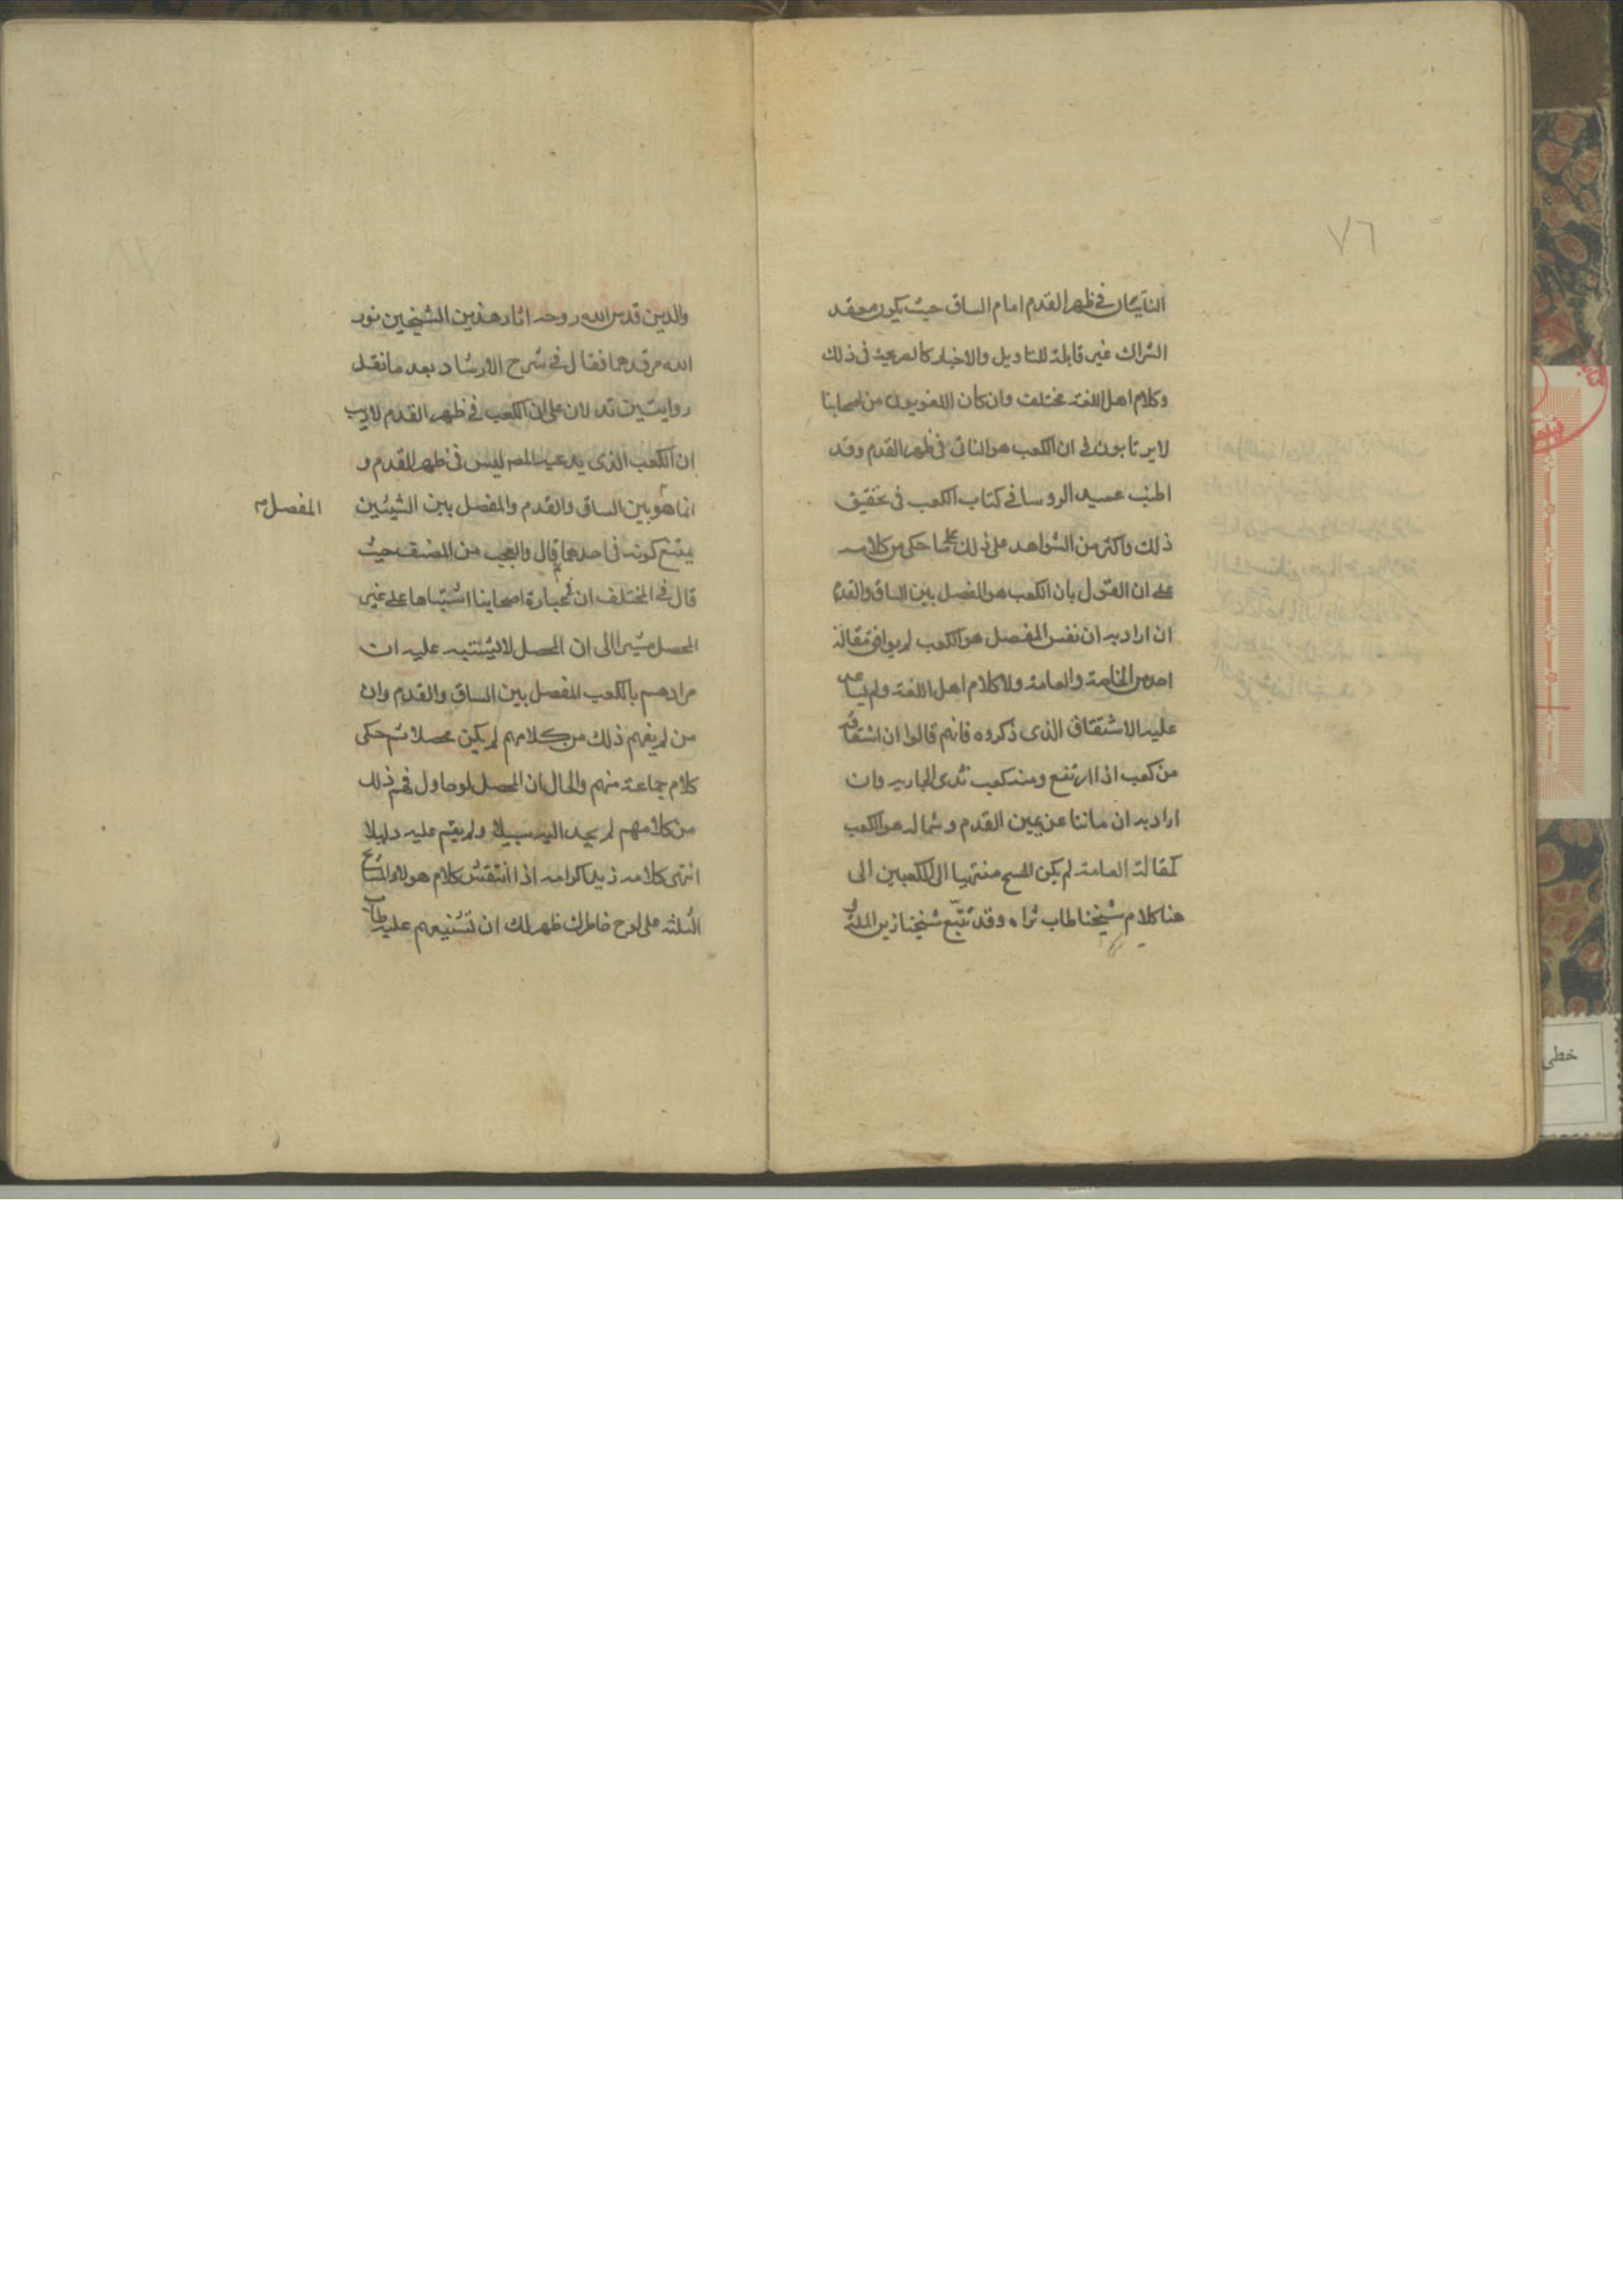 ٧٦
الناتيان في ظهر القدم امام الساق حيث يكون معقد
الشراك غير قابلة للتاويل والاخبار كالصريحة فى ذلك
وكلام اهل اللغة مختلف وان كان اللغويون من اصحابنا
لا يرتابون فى ان الكعب هو الناتى فى ظهر القدم وقد
اطنب عميد الروسا فے كتاب الكعب فى تحقيق
ذلك واكثر من الشواهد على ذلك على ما حكى من كلامه
على ان القول بان الكعب هو المفصل بين الساق والقدم
ان اراد به ان نفس المفصل هو الكعب لم يوافق مقالة
احد من الخاصة والعامة ولا كلام اهل اللغة ولم يساعد
عليه الاشتقاق الذى ذكروه فانهم قالوا ان اشتقاقه
من كعب اذا ارتفع ومنه كعب ثدى الجارية وان
اراد به ان ما نتا عن يمين القدم وشماله هو الكعب
كمقالة العامة لم يكن المسح منتهيا الى الكعبين الى
هنا كلام شيخنا طاب ثراه وقد تتبع شيخنا زين الملة و
والدين قدس الله روحه اثار هذين الشيخين نور
الله مرقدهما فقال فى شرح الارشاد بعد ما نقل
روايتين تدلان على ان الكعب فى ظهر القدم لا ريب
ان الكعب الذى يدعيه المصـ ليس فى ظهر القدم و
انما هو بين الساق والقدم والمفصل بين الشيئين
المفصل
يمتنع كونه فى احدهما ثم قال والعجب من المصنف حيث
قال فى المختلف ان فى عبارة اصحابنا اشتباها على غير
المحصل مشيرا الى ان المحصل لا يشتبه عليه ان
مرادهم بالكعب المفصل بين الساق والقدم وان
من لم يفهم ذلك من كلامهم لم يكن محصلا ثم حكى
كلام جماعة منهم والحال ان المحصل لو حاول فهم ذلك
من كلامهم لم يجد اليه سبيلا ولم يقم عليه دليلا
انتهى كلامه زيد اكرامه اذا انتقش كلام هولاء المشايخ
الثلثه على لوح خاطرك ظهر لك ان تشنيعهم عليه طاب
خطى